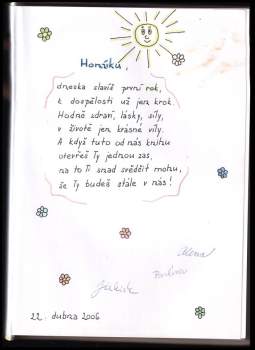 Honzíku,
dneska slavíš první rok,
k dospělosti už jen krok.
Hodně zdraví, lásky, síly,
v životě jen krásné víly.
A když tuto od nás knihu
otevřeš Ty jednou zas,
na to Ti snad svědčit mohu,
že Ty budeš stále v nás!
Alena
22. dubna 2006